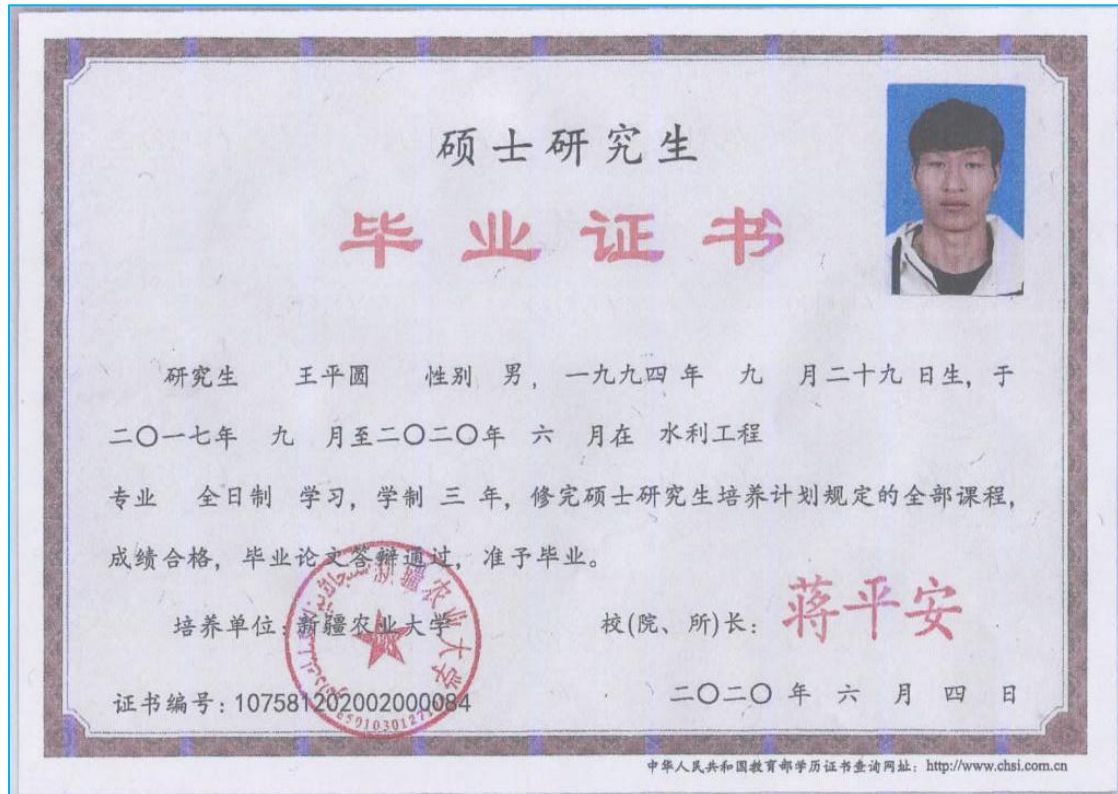 硕士研究生
毕业证书
研究生 王平圆 性别 男，一九九四 年 九 月二十九 日生，于
二〇一七年 九 月至二〇二〇年 六 月在 水利工程
专业 全日制 学习，学制 三 年，修完硕士研究生培养计划规定的全部课程，
成绩合格，毕业论文答辩通过，准予毕业。
培养单位：新疆农业大学
校(院、所)长：
蒋平安
新疆农业大学
证书编号：107581202002000084
二〇二〇 年 六 月 四 日
中华人民共和国教育部学历证书查询网址：http://www.chsi.com.cn